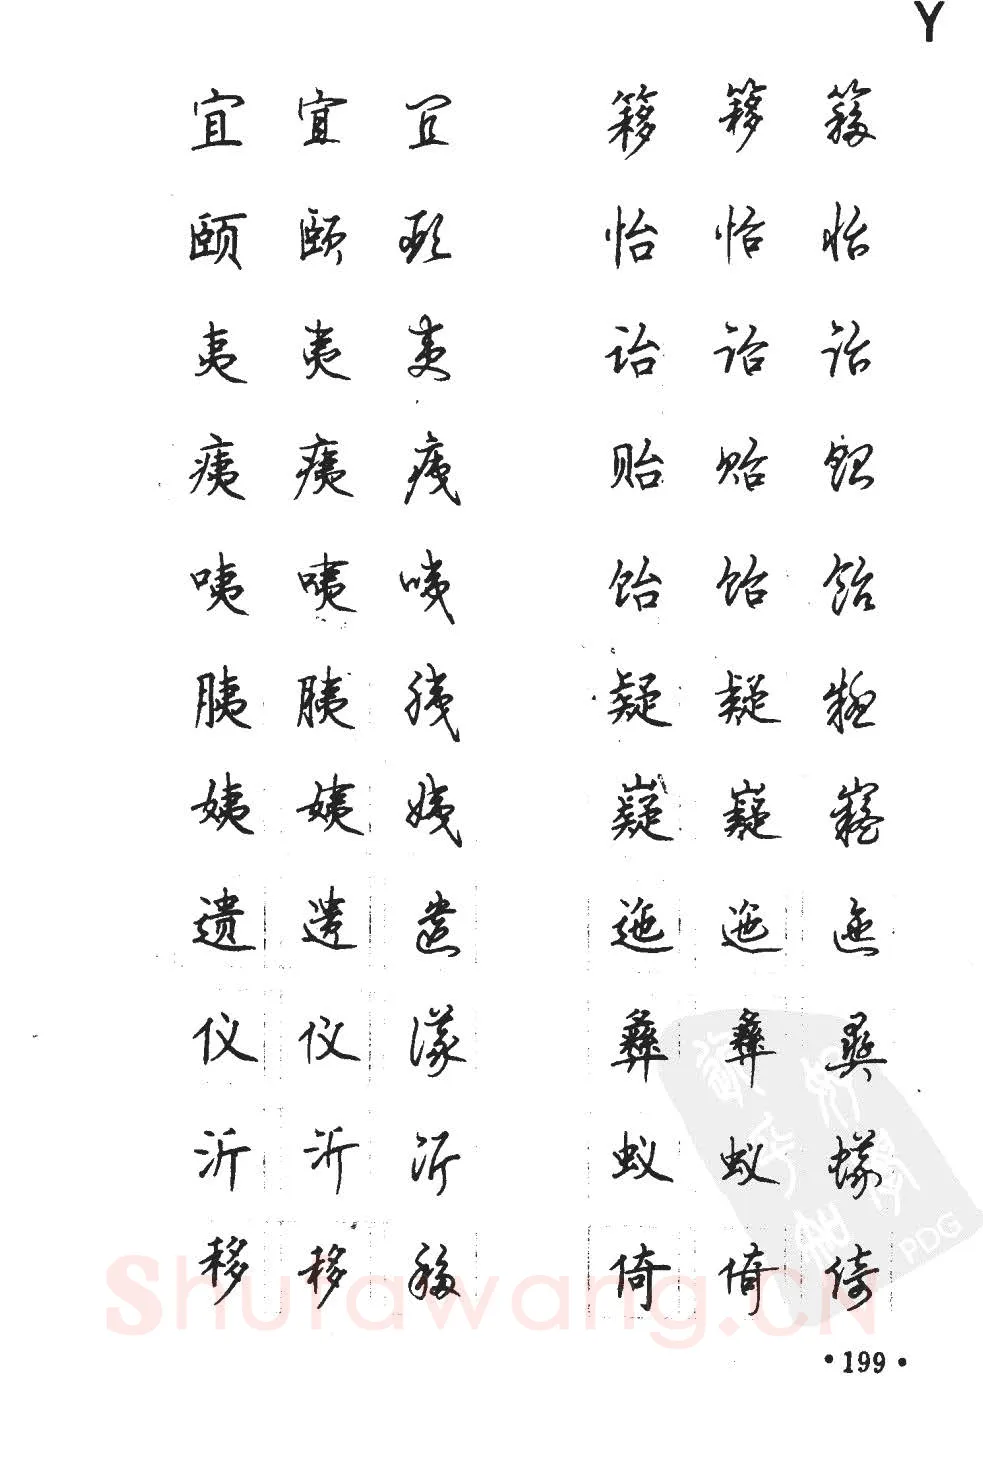 Y
宜 宜 宜 簃 簃 簃
颐 颐 颐 怡 怡 怡
夷 夷 夷 诒 诒 诒
痍 痍 痍 贻 贻 贻
咦 咦 咦 饴 饴 饴
胰 胰 胰 疑 疑 疑
姨 姨 姨 嶷 嶷 嶷
遗 遗 遗 迤 迤 迤
仪 仪 仪 彝 彝 彝
沂 沂 沂 蚁 蚁 蚁
移 移 移 倚 倚 倚
Shufawang.CN
PDG
·199·